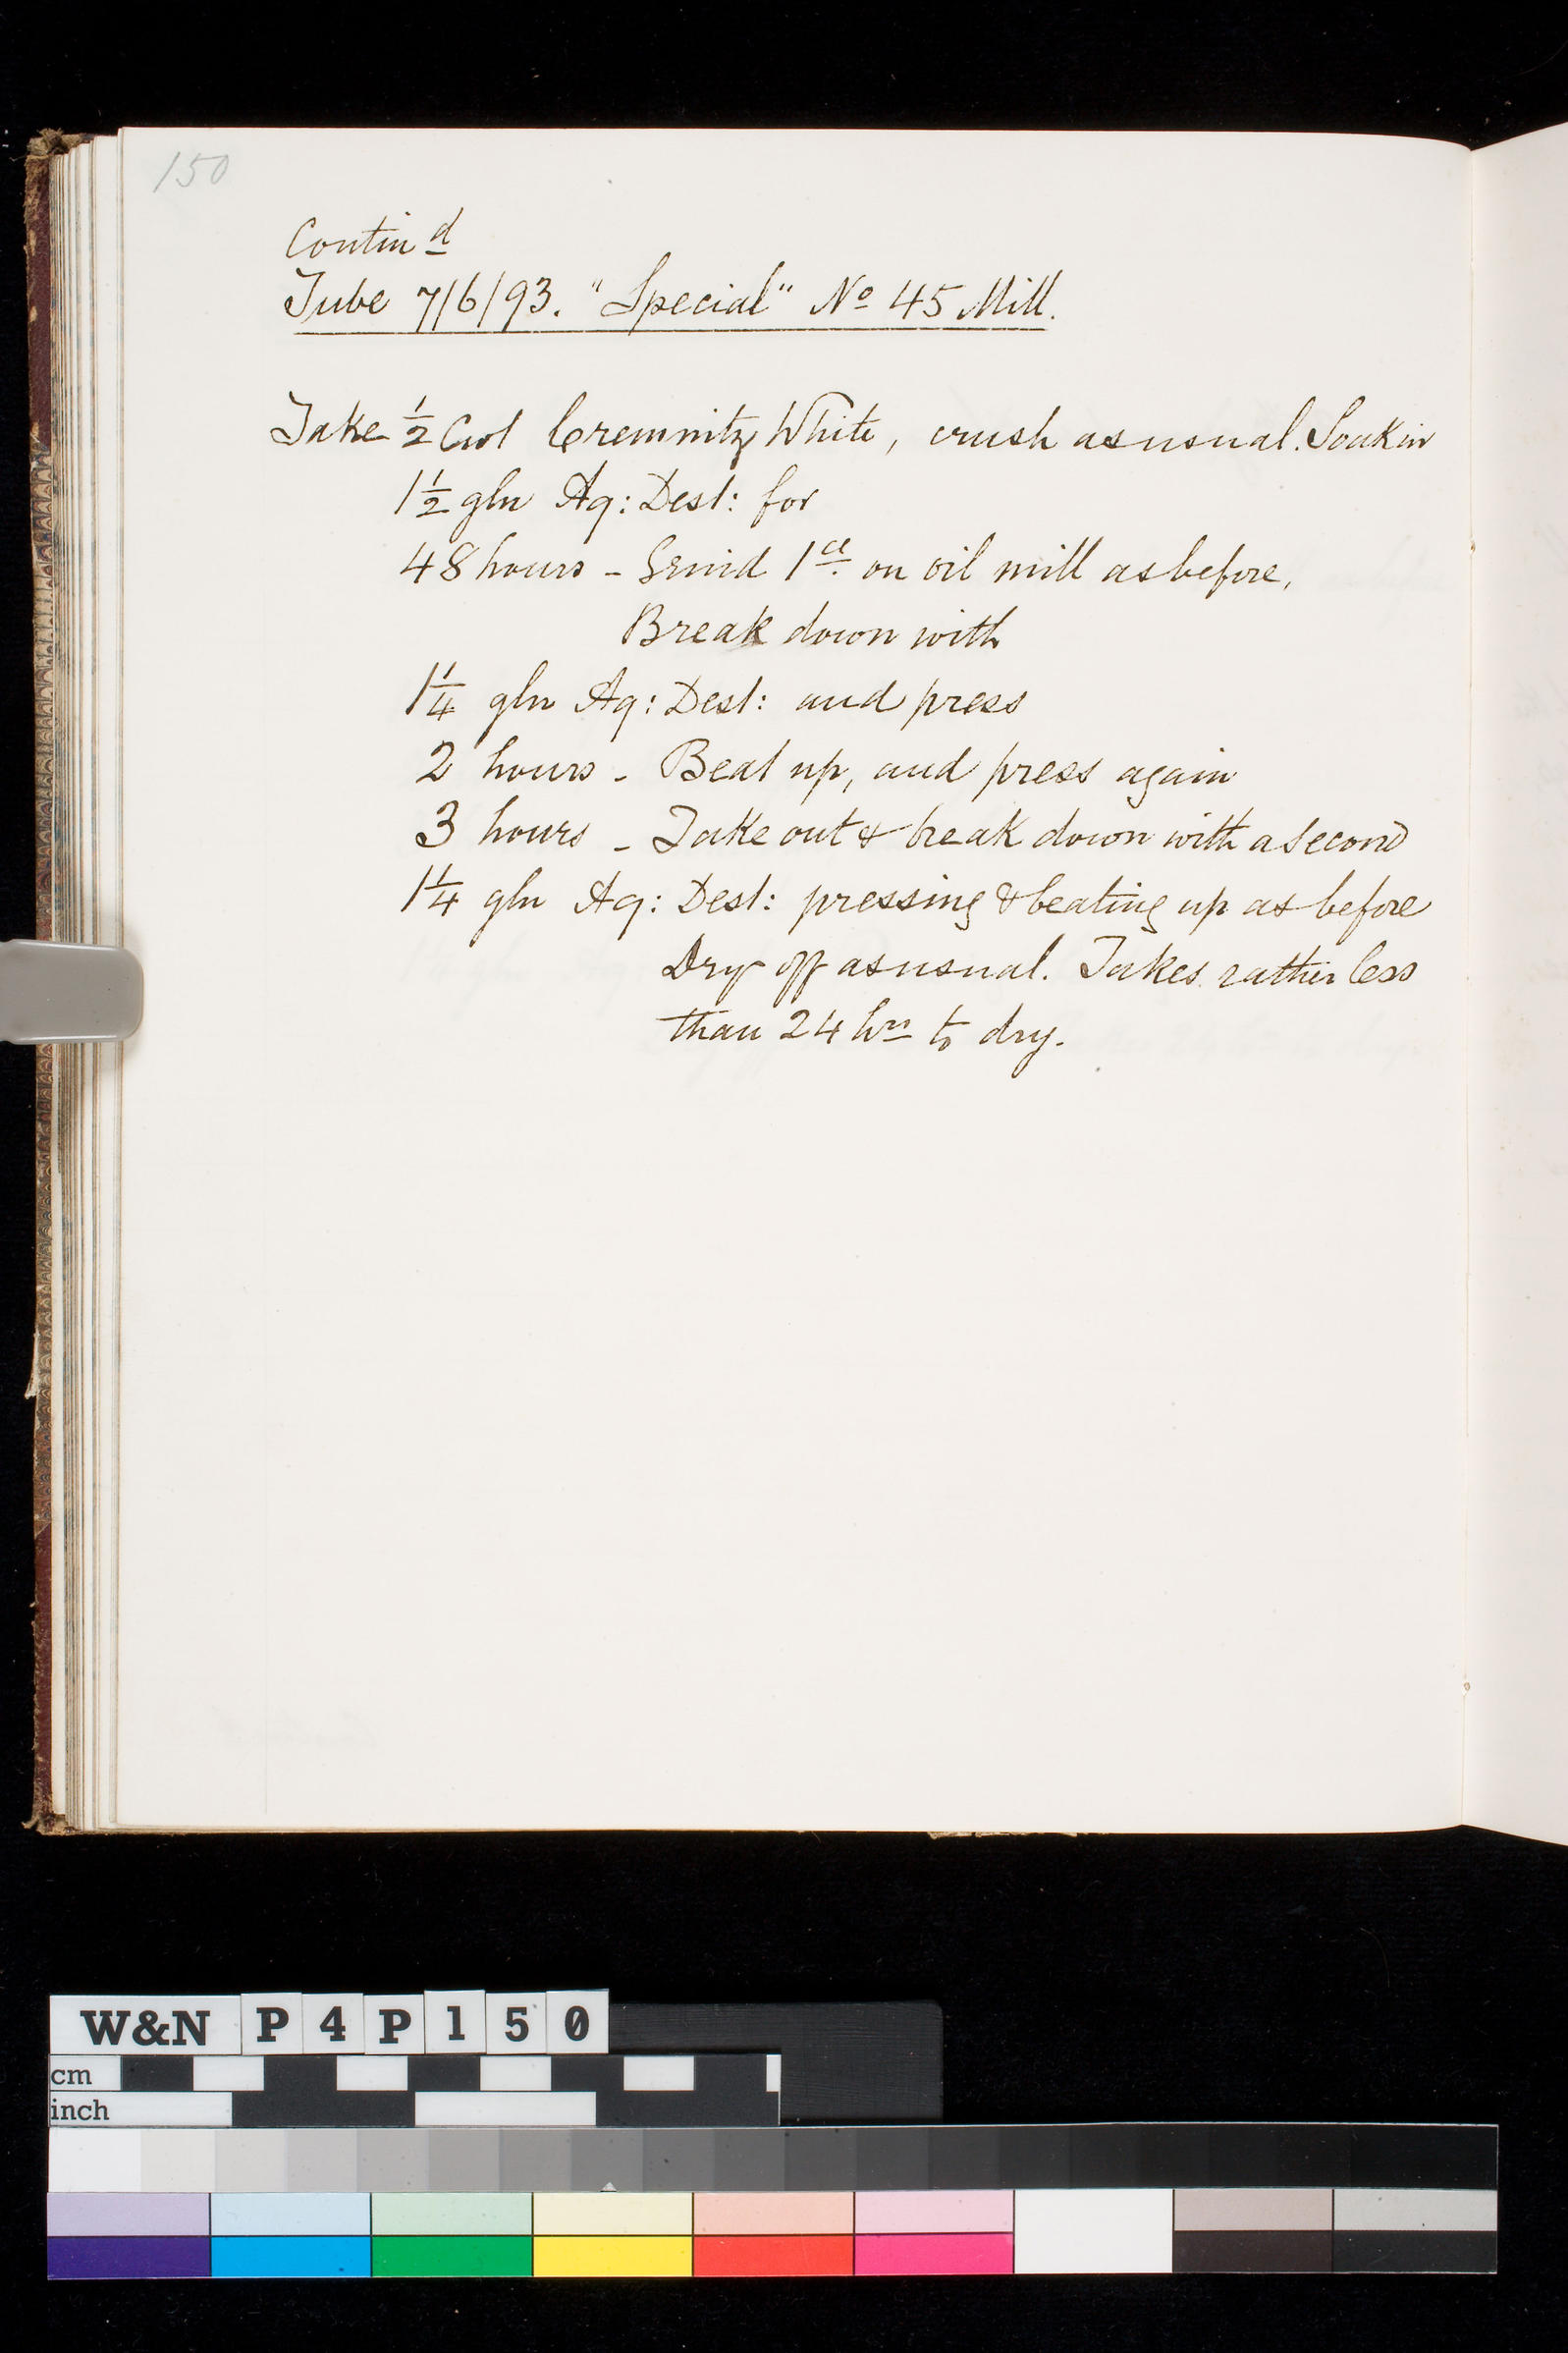 150
Contin d
Tube 7/6/93. "Special" No 45 Mill.
Take 1/2 Cwt Cremnitz White, crush as usual. Soak in
1 1/2 gln Aq: Dest: for
48 hours - Grind 1st on oil mill as before,
Break down with
1 1/4 gln Aq: Dest: and press
2 hours - Beat up, and press again
3 hours - Take out & break down with a second
1 1/4 gln Aq: Dest: pressing & beating up as before
Dry off as usual. Takes rather less
than 24 hrs to dry.
W&N P4P150
cm
inch